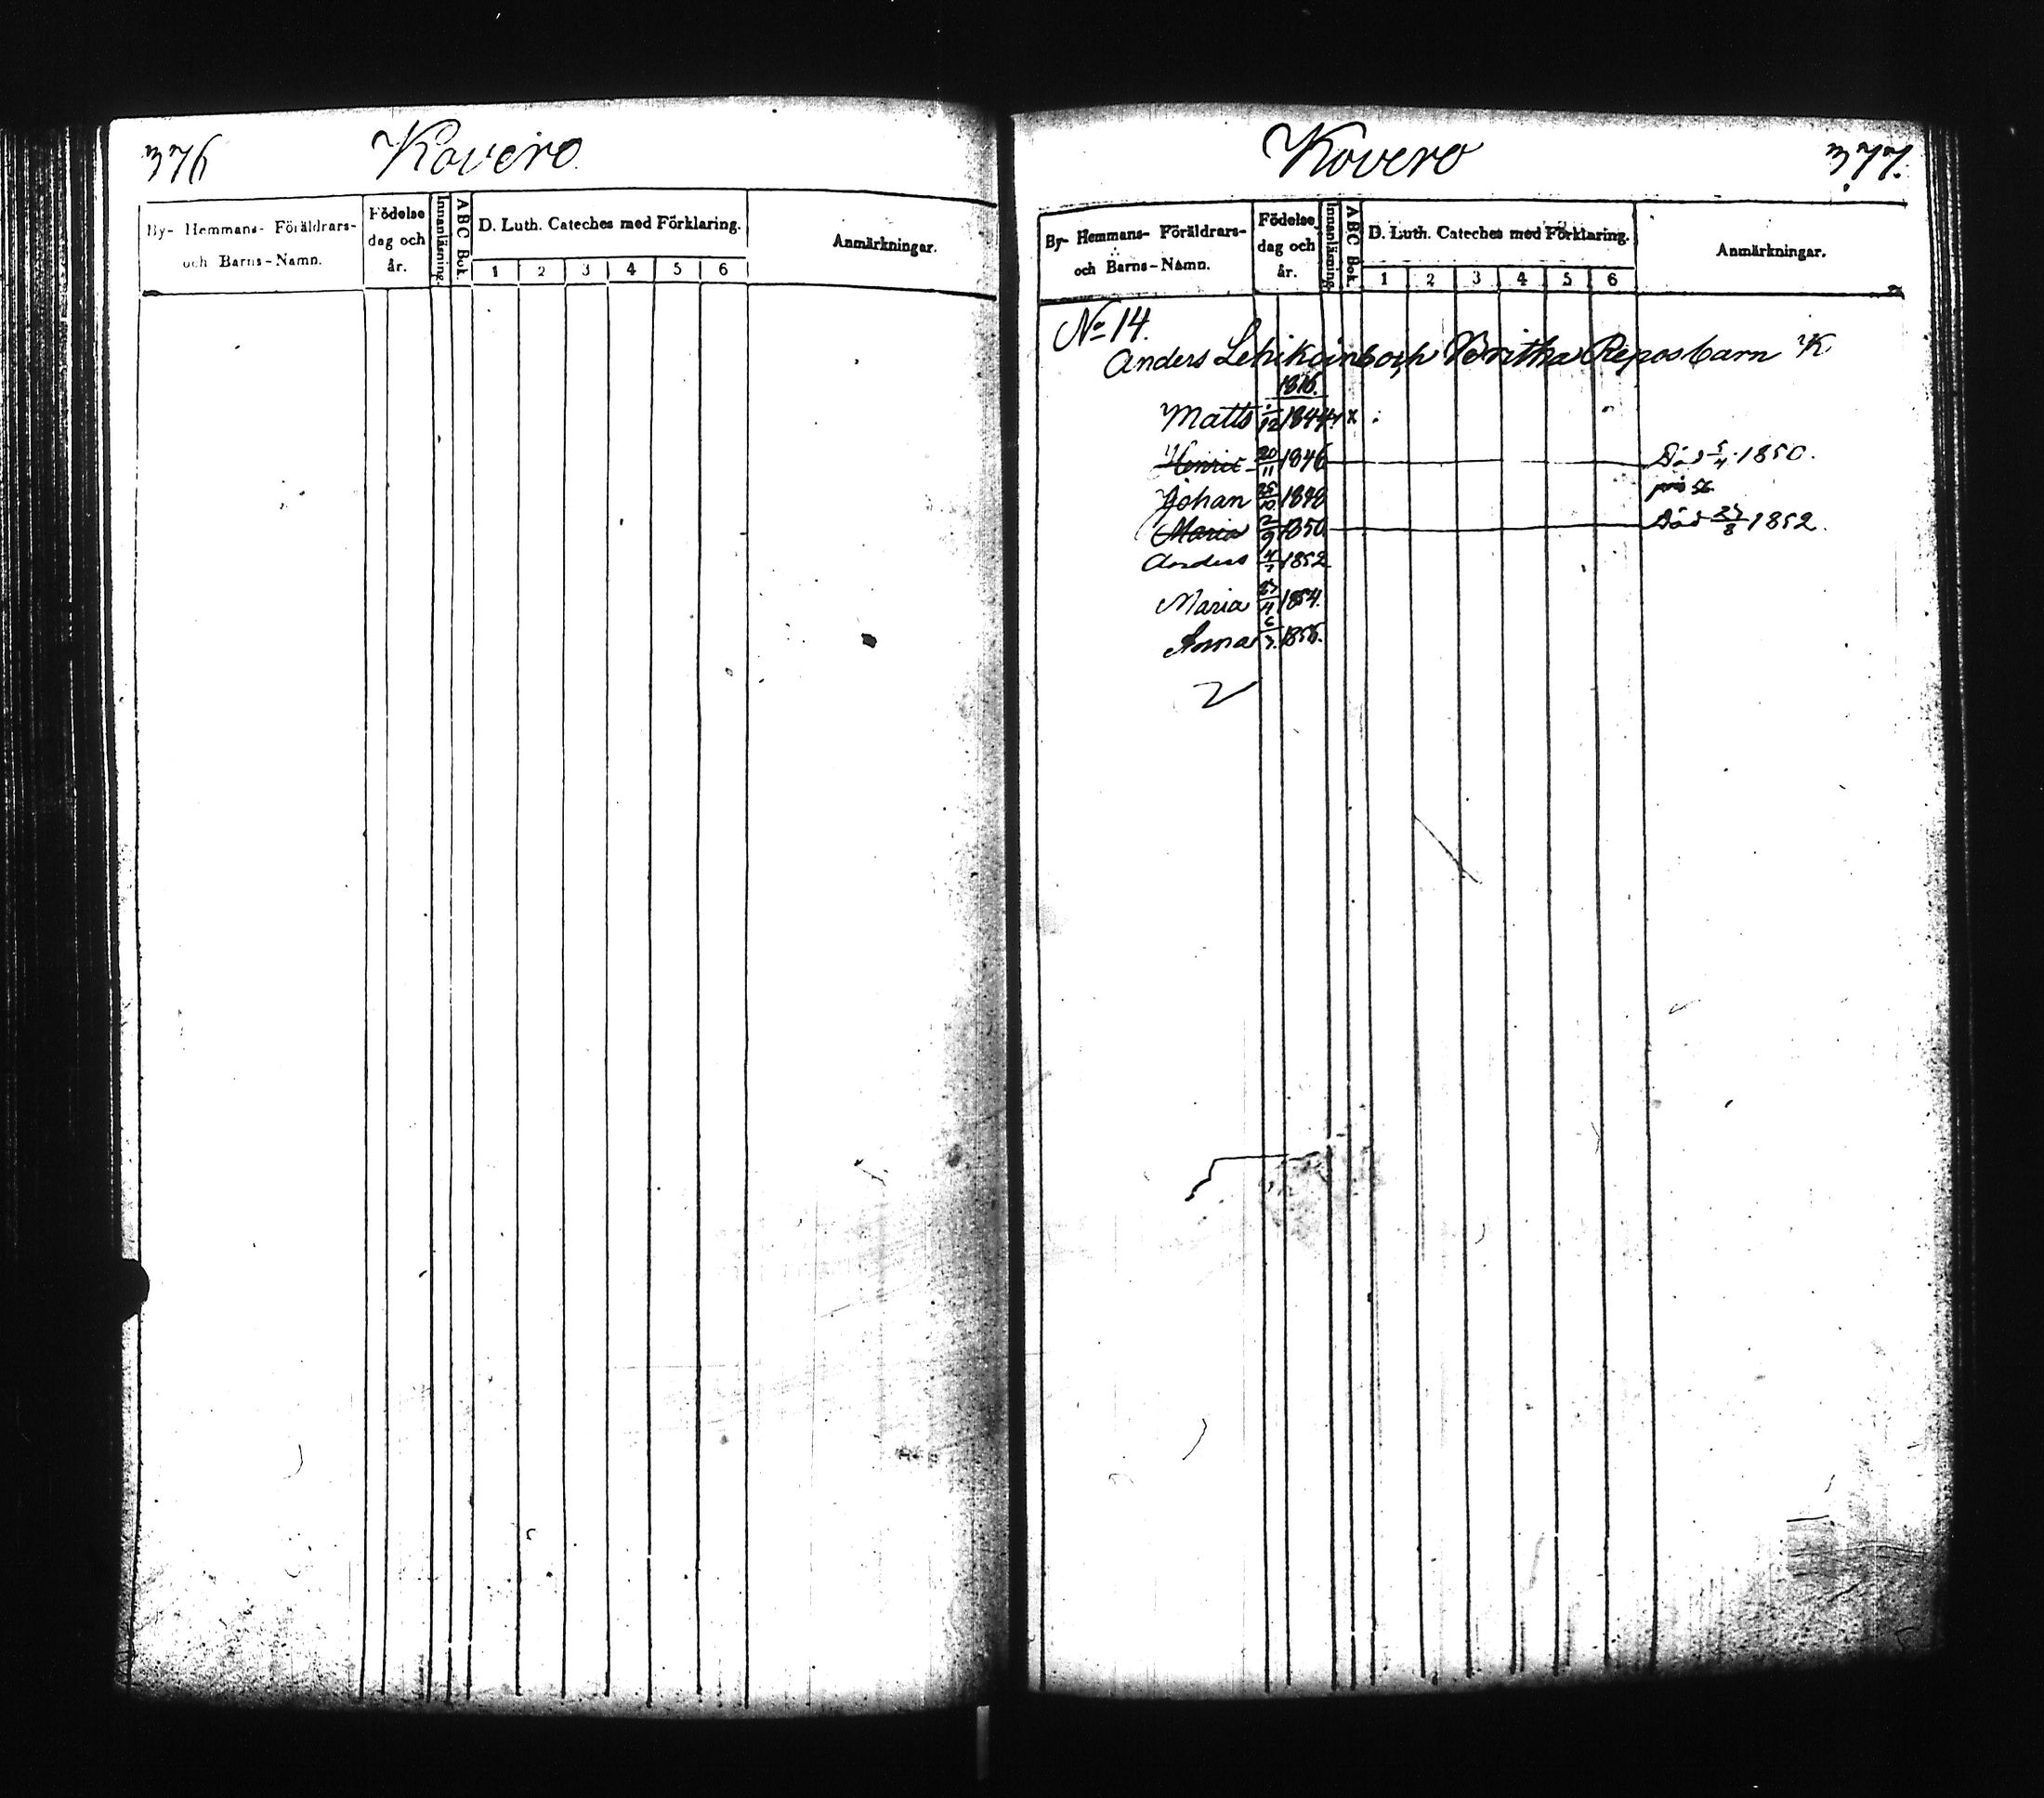 376 Kovero
By- Hemmans- Föräldrars- och Barns-Namn. Födelse dag och år. Innanläsning. ABC Bok. D. Luth. Cateches med Förklaring. 1 2 3 4 5 6 Anmärkningar.
Kovero 377.
By- Hemmans- Föräldrars- och Barns-Namn. Födelse dag och år. Innanläsning. ABC Bok. D. Luth. Cateches med Förklaring. 1 2 3 4 5 6 Anmärkningar.
No 14.
Anders Lehikoin och Reposbarn K
1816.
Matts 1844 x
Henric 20/11 1846 Död 1850.
Johan 1848
Maria 2/9 1850 Död 27/8 1852.
Anders 1852
Maria 27/4 1854.
Anna 6/7.